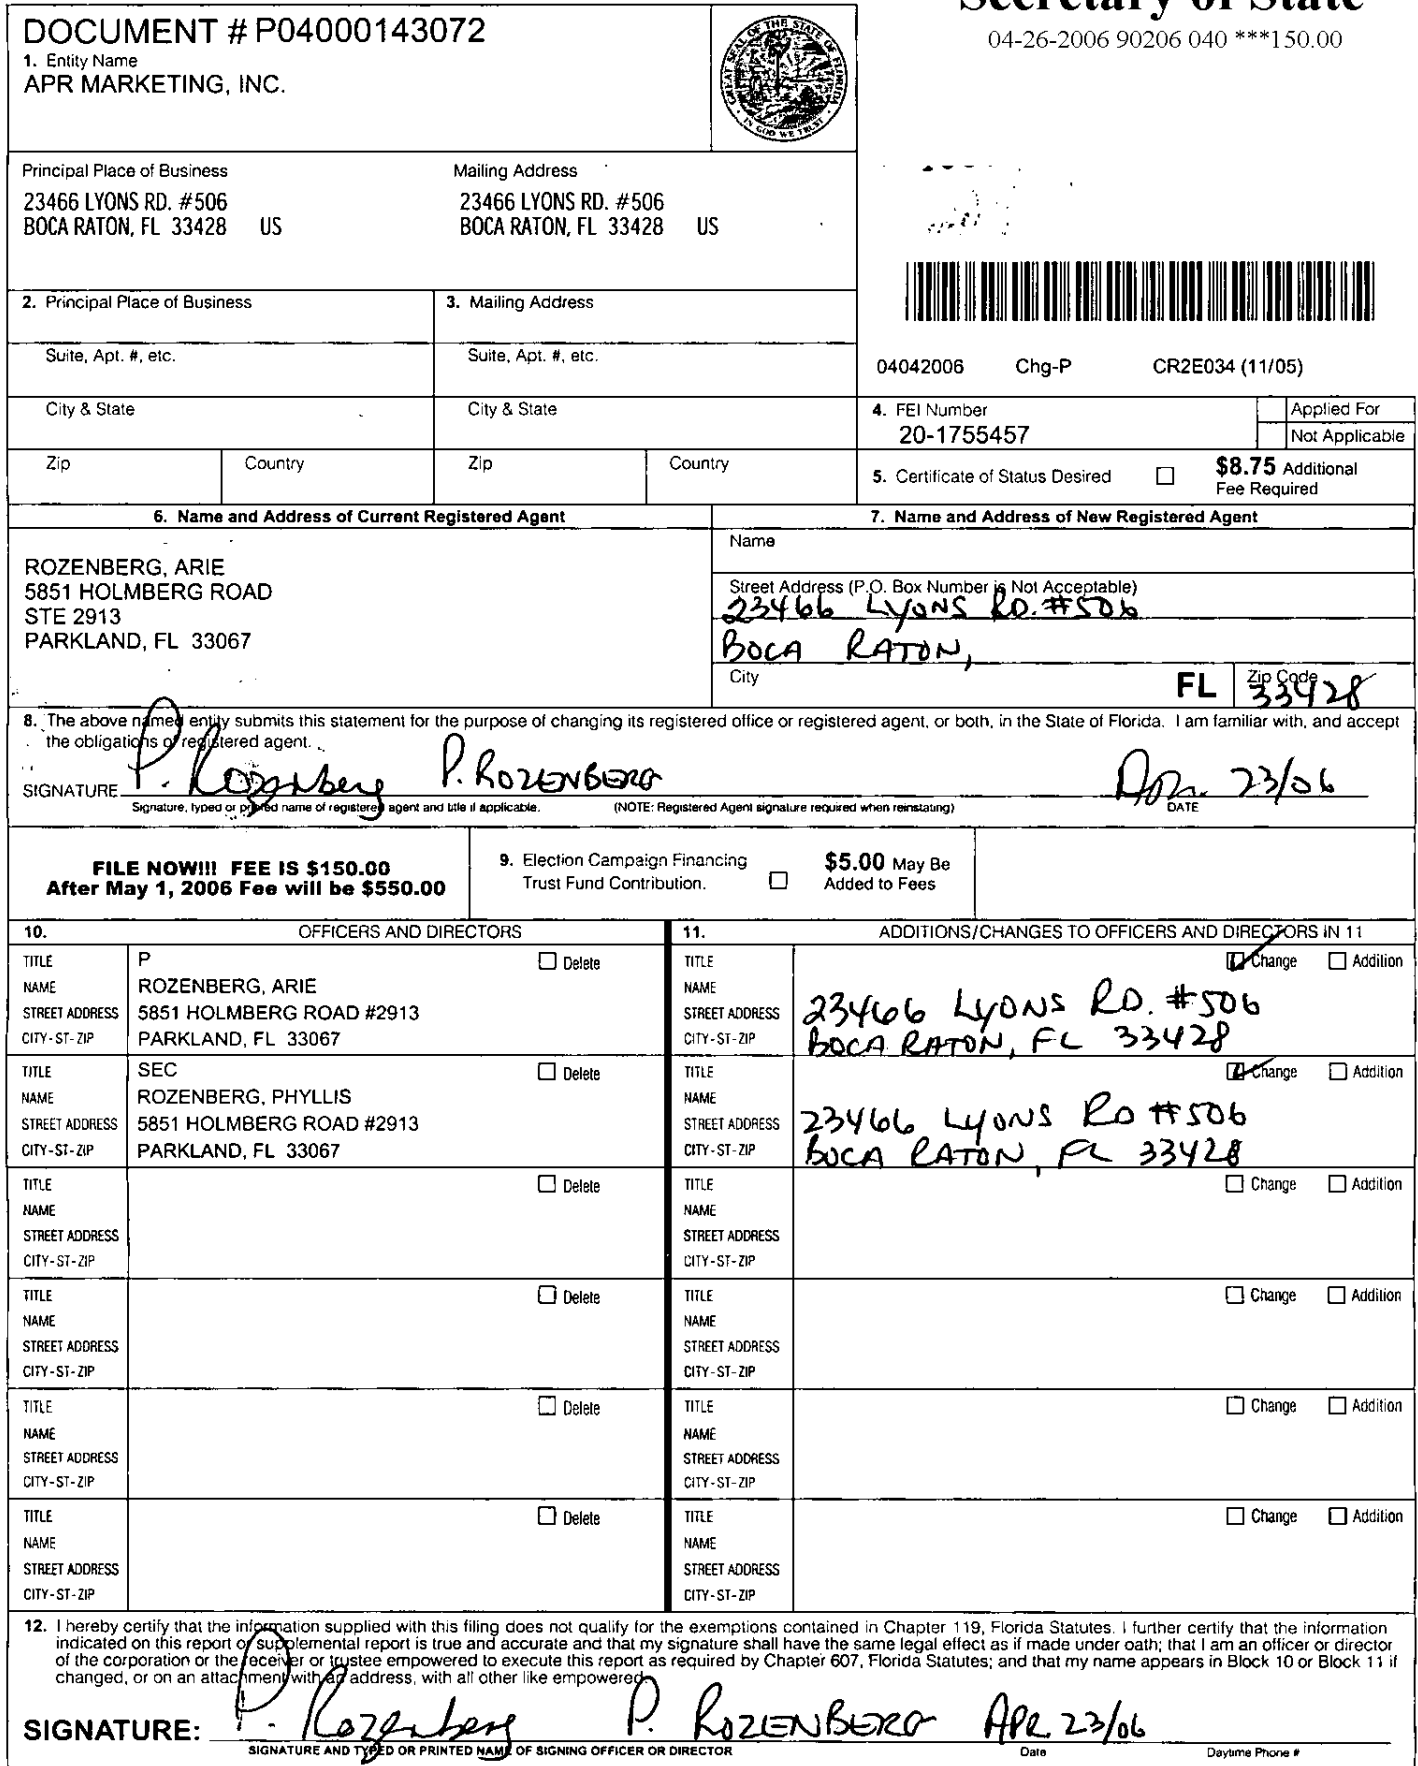 Secretary of State
04-26-2006 90206 040 ***150.00
DOCUMENT # P04000143072
1. Entity Name
APR MARKETING, INC.
GREAT SEAL OF THE STATE OF FLORIDA
IN GOD WE TRUST
Principal Place of Business
23466 LYONS RD. #506
BOCA RATON, FL 33428 US
Mailing Address
23466 LYONS RD. #506
BOCA RATON, FL 33428 US
2. Principal Place of Business
3. Mailing Address
Suite, Apt. #, etc.
Suite, Apt. #, etc.
04042006 Chg-P CR2E034 (11/05)
City & State
City & State
4. FEI Number
20-1755457
Applied For
Not Applicable
Zip
Country
Zip
Country
5. Certificate of Status Desired
$8.75 Additional
Fee Required
6. Name and Address of Current Registered Agent
ROZENBERG, ARIE
5851 HOLMBERG ROAD
STE 2913
PARKLAND, FL 33067
7. Name and Address of New Registered Agent
Name
Street Address (P.O. Box Number is Not Acceptable)
23466 LYONS RD. #506
BOCA RATON,
City
FL
Zip Code
33428
8. The above named entity submits this statement for the purpose of changing its registered office or registered agent, or both, in the State of Florida. I am familiar with, and accept
the obligations of registered agent.
SIGNATURE P. Rozenberg P. ROZENBERG Apr. 23/06
Signature, typed or printed name of registered agent and title if applicable.
(NOTE: Registered Agent signature required when reinstating)
DATE
FILE NOW!!! FEE IS $150.00
After May 1, 2006 Fee will be $550.00
9. Election Campaign Financing
Trust Fund Contribution.
$5.00 May Be
Added to Fees
10. OFFICERS AND DIRECTORS
11. ADDITIONS/CHANGES TO OFFICERS AND DIRECTORS IN 11
TITLE P Delete
NAME ROZENBERG, ARIE
STREET ADDRESS 5851 HOLMBERG ROAD #2913
CITY-ST-ZIP PARKLAND, FL 33067
TITLE Change Addition
NAME
STREET ADDRESS 23466 LYONS RD. #506
CITY-ST-ZIP BOCA RATON, FL 33428
TITLE SEC Delete
NAME ROZENBERG, PHYLLIS
STREET ADDRESS 5851 HOLMBERG ROAD #2913
CITY-ST-ZIP PARKLAND, FL 33067
TITLE Change Addition
NAME
STREET ADDRESS 23466 LYONS RD #506
CITY-ST-ZIP BOCA RATON, FL 33428
TITLE Delete
NAME
STREET ADDRESS
CITY-ST-ZIP
TITLE Change Addition
NAME
STREET ADDRESS
CITY-ST-ZIP
TITLE Delete
NAME
STREET ADDRESS
CITY-ST-ZIP
TITLE Change Addition
NAME
STREET ADDRESS
CITY-ST-ZIP
TITLE Delete
NAME
STREET ADDRESS
CITY-ST-ZIP
TITLE Change Addition
NAME
STREET ADDRESS
CITY-ST-ZIP
TITLE Delete
NAME
STREET ADDRESS
CITY-ST-ZIP
TITLE Change Addition
NAME
STREET ADDRESS
CITY-ST-ZIP
12. I hereby certify that the information supplied with this filing does not qualify for the exemptions contained in Chapter 119, Florida Statutes. I further certify that the information
indicated on this report or supplemental report is true and accurate and that my signature shall have the same legal effect as if made under oath; that I am an officer or director
of the corporation or the receiver or trustee empowered to execute this report as required by Chapter 607, Florida Statutes; and that my name appears in Block 10 or Block 11 if
changed, or on an attachment with an address, with all other like empowered.
SIGNATURE: P. Rozenberg P. ROZENBERG APR 23/06
SIGNATURE AND TYPED OR PRINTED NAME OF SIGNING OFFICER OR DIRECTOR
Date
Daytime Phone #